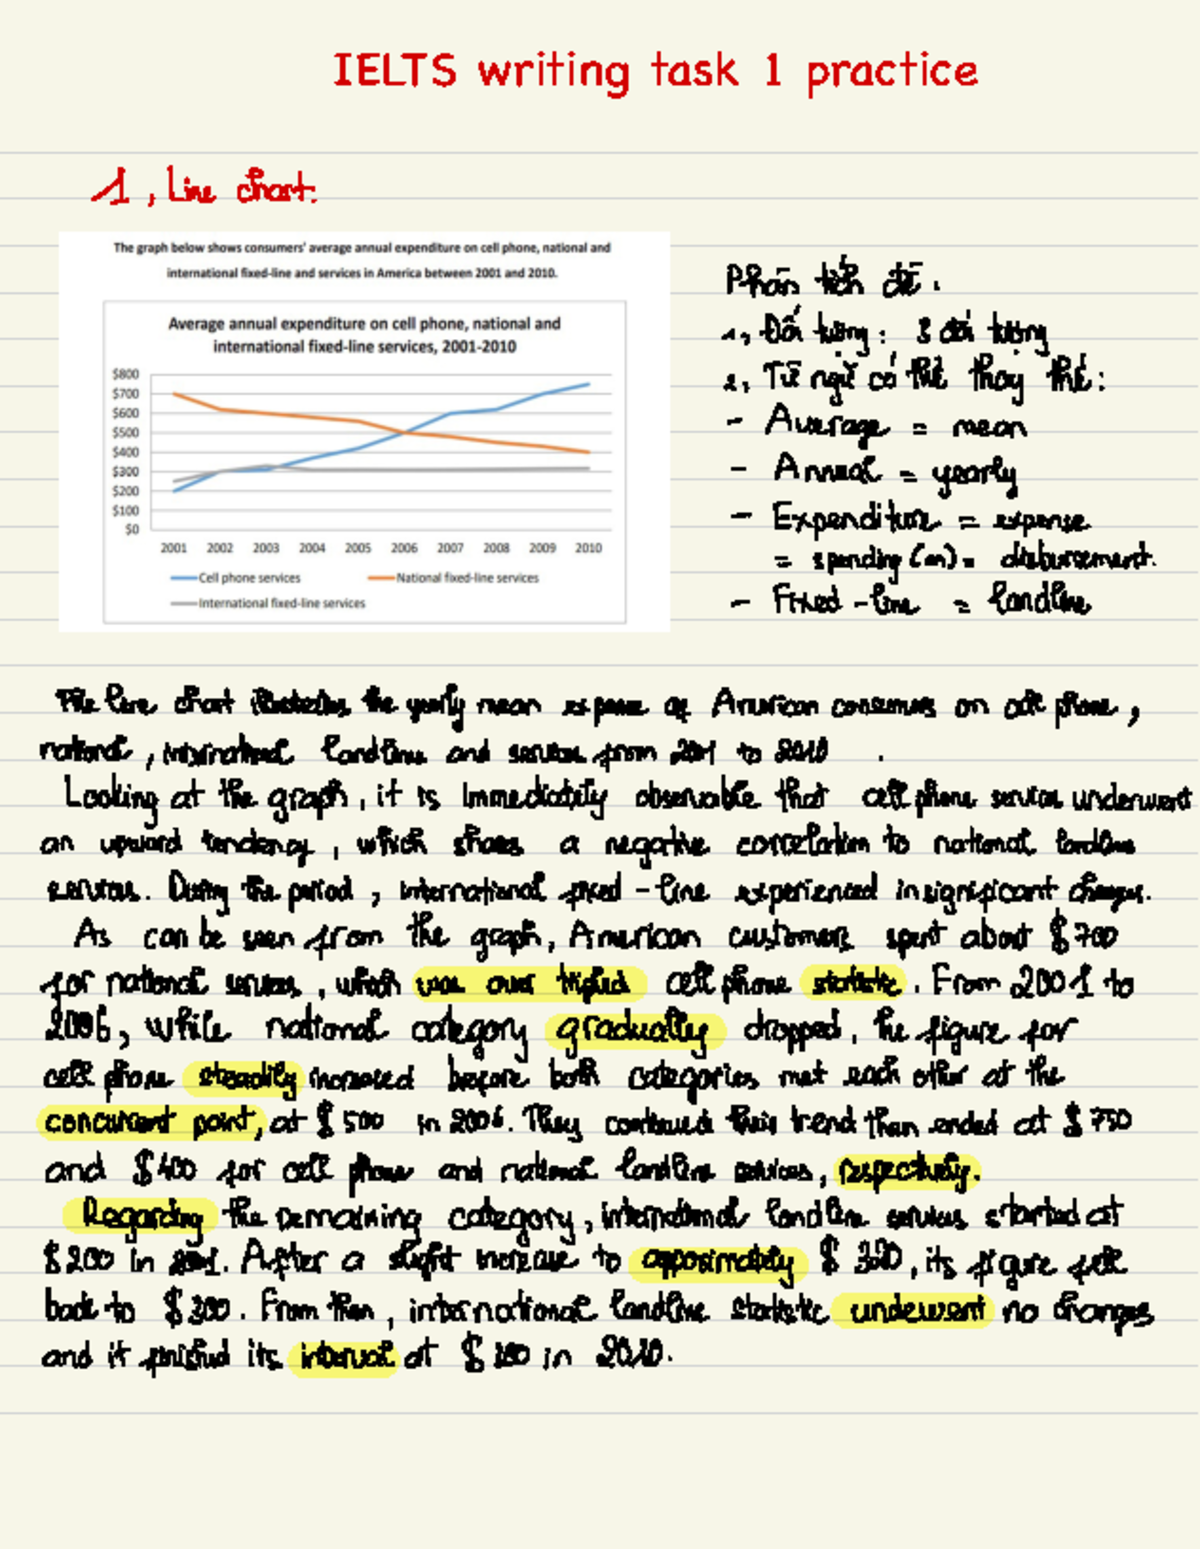 IELTS writing task 1 practice
1, Line chart.
The graph below shows consumers' average annual expenditure on cell phone, national and
international fixed-line and services in America between 2001 and 2010.
Average annual expenditure on cell phone, national and
international fixed-line services, 2001-2010
$800
$700
$600
$500
$400
$300
$200
$100
$0
2001 2002 2003 2004 2005 2006 2007 2008 2009 2010
Cell phone services
National fixed-line services
International fixed-line services
Phân tích đề.
1, Đối tượng: 3 đối tượng
2, Từ ngữ có thể thay thế:
- Average = mean
- Annual = yearly
- Expenditure = expense
= spending (on) = disbursement.
- Fixed-line = landline
The line chart illustrates the yearly mean expense of American consumers on cell phone,
national, international landline and services from 2001 to 2010.
Looking at the graph, it is immediately observable that cell phone services underwent
an upward tendency, which shares a negative correlation to national landline
services. During the period, international fixed-line experienced insignificant changes.
As can be seen from the graph, American customers spent about $700
for national services, which was over tripled cell phone statistic. From 2001 to
2006, while national category gradually dropped, the figure for
cell phone steadily increased before both categories met each other at the
concurrent point, at $500 in 2006. They continued their trend then ended at $750
and $400 for cell phone and national landline services, respectively.
Regarding the remaining category, international landline services started at
$200 in 2001. After a slight increase to approximately $320, its figure fell
back to $300. From then, international landline statistic underwent no changes
and it finished its interval at $ in 2010.